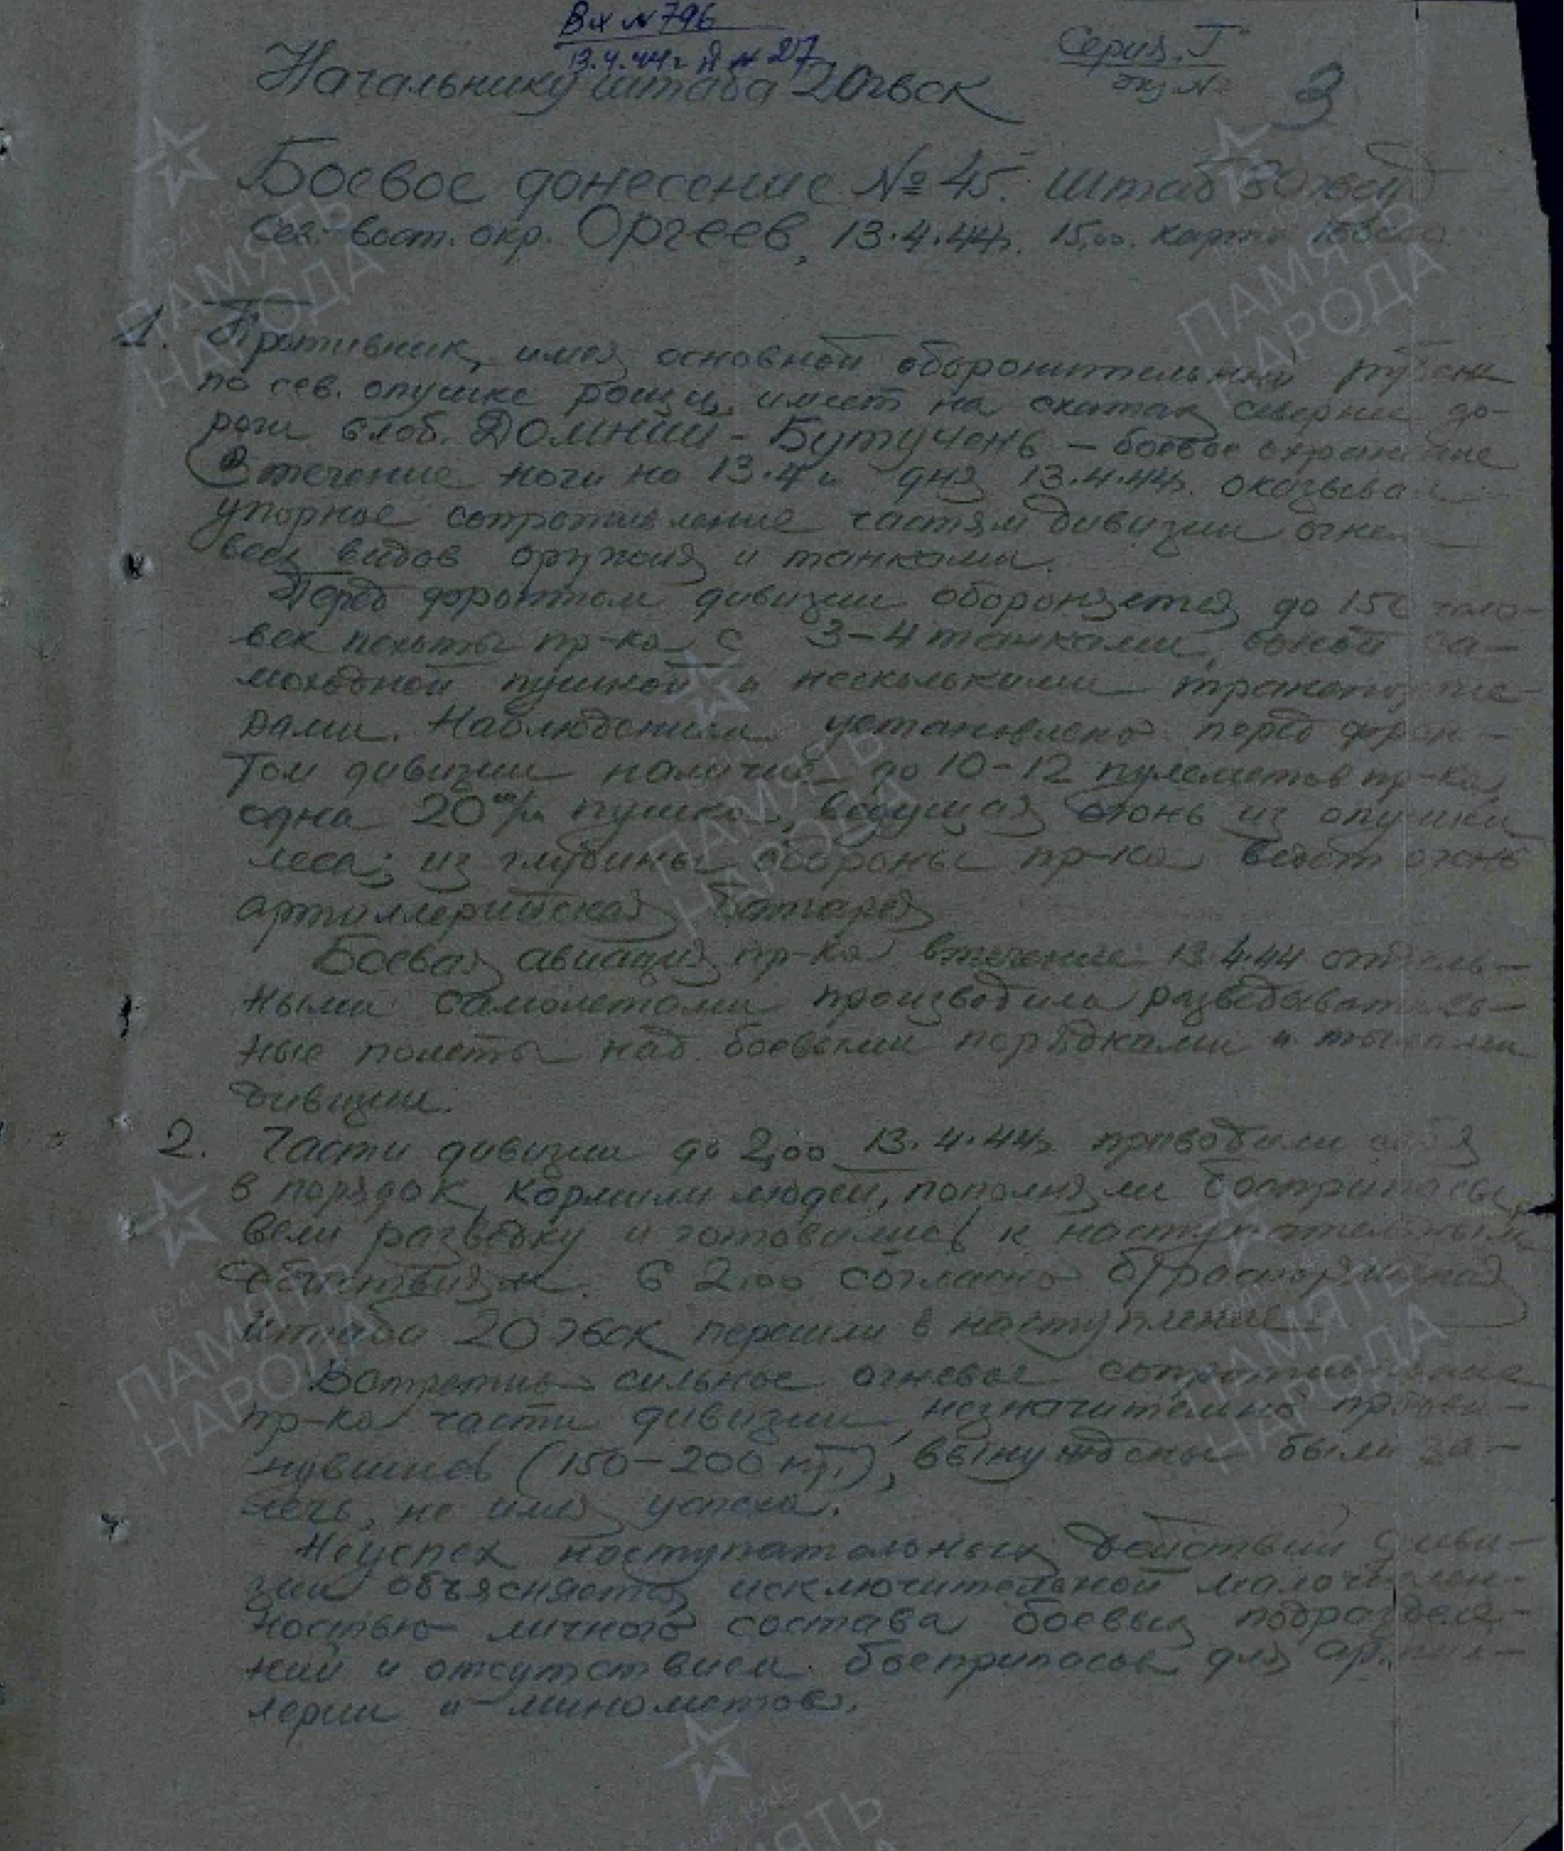 Вх №796
13.4.44г
Серия "Г"
экз №
Начальнику штаба 20гвск
3
Боевое донесение № 45. Штаб
Сев.-вост. окр. Оргеев, 13.4.44г. 15.00. карта
1. Противник, имея основной оборонительный рубеж
по сев. опушке рощи, имеет на скатах севернее до-
роги слоб. Домний - Бутучень - боевое охранение
В течение ночи на 13.4 и дня 13.4.44г. оказывал
упорное сопротивление частям дивизии огнем
всех видов оружия и танками.
Перед фронтом дивизии обороняется до 150 чело-
век пехоты пр-ка с 3-4 танками, одной са-
моходной пушкой и несколькими транспорте-
рами. Наблюдением установлено перед фрон-
том дивизии наличие до 10-12 пулеметов пр-ка,
одна 20 м/м пушка, ведущая огонь из опушки
леса; из глубины обороны пр-ка ведет огонь
артиллерийская батарея
Боевая авиация пр-ка втечение 13.4.44 отдель-
ными самолетами производила разведыватель-
ные полеты над боевыми порядками и тылами
дивизии.
2. Части дивизии до 2.00 13.4.44г. приводили себя
в порядок, кормили людей, пополняли боеприпасы,
вели разведку и готовились к наступательным
действиям. В 2.00 согласно б/распоряжения
штаба 20 гвск перешли в наступление.
Встретив сильное огневое сопротивление
пр-ка части дивизии, незначительно продви-
нувшись (150-200 мт.), вынуждены были за-
лечь, не имея успеха.
Неуспех наступательных действий диви-
зии объясняется исключительной малочислен-
ностью личного состава боевых подразделе-
ний и отсутствием боеприпасов для артил-
лерии и минометов.
ПАМЯТЬ
НАРОДА